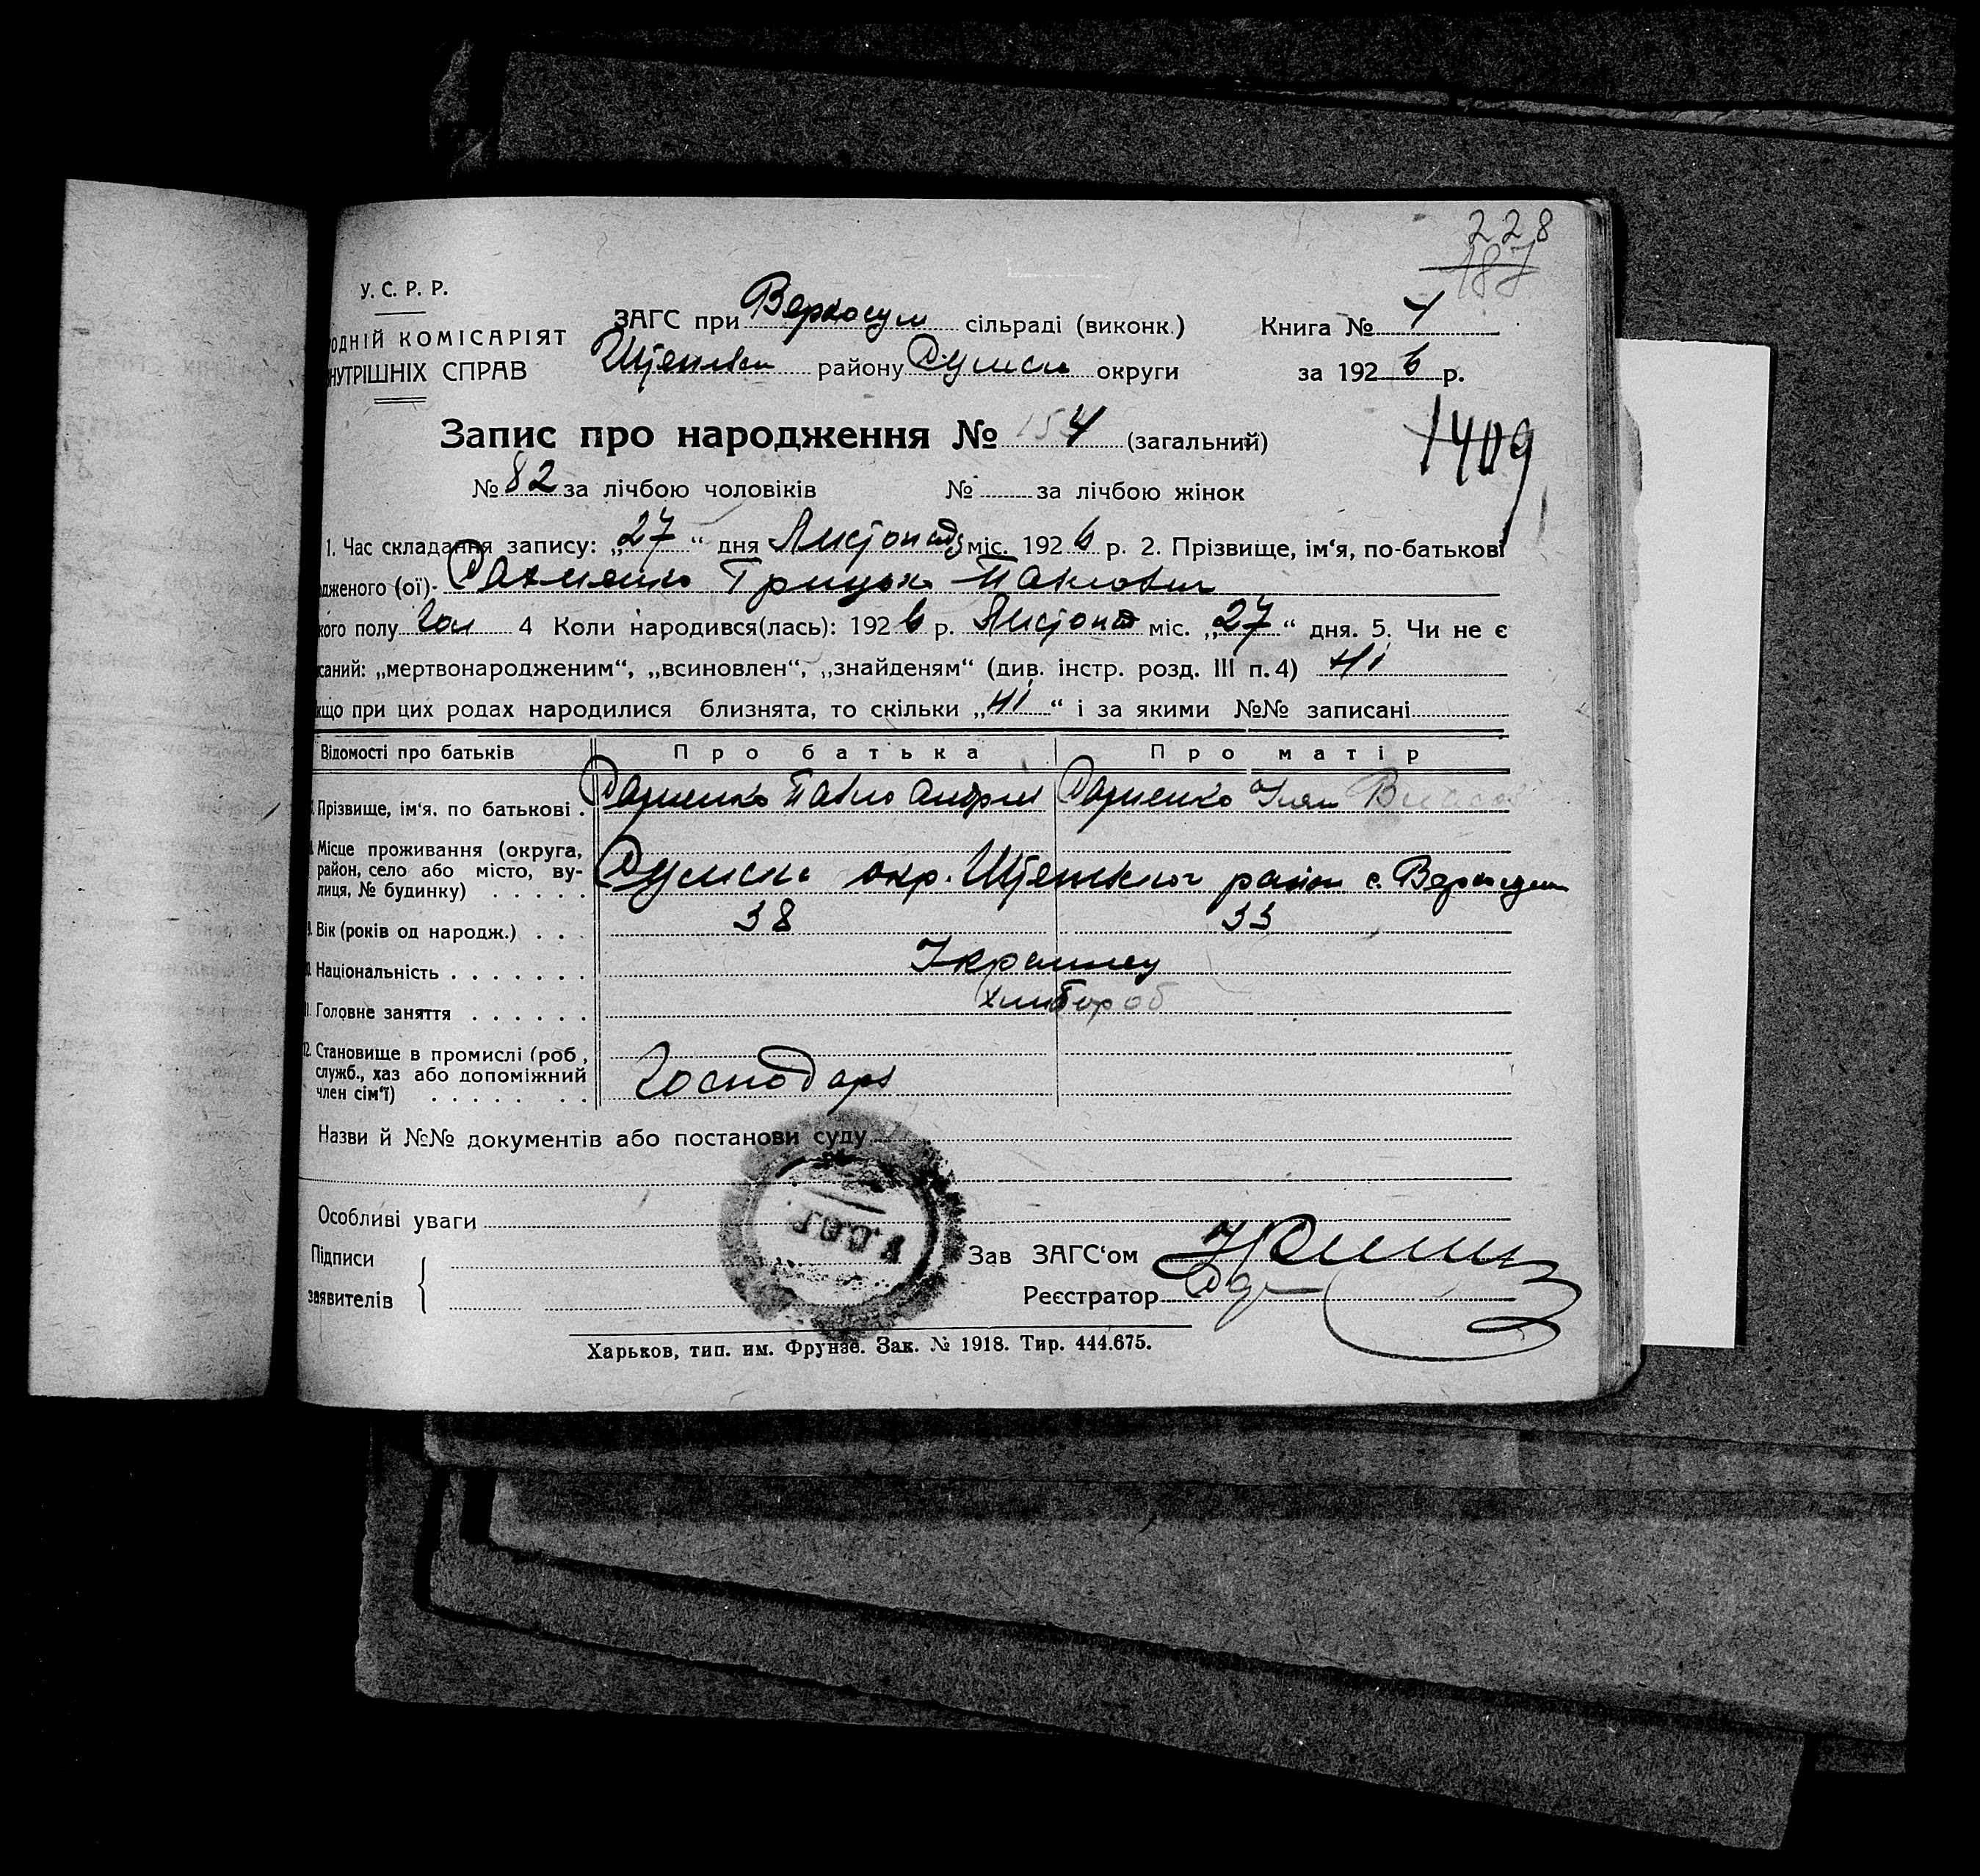 228
187
У. С. Р. Р.
ОДНІЙ КОМІСАРІЯТ
НУТРІШНІХ СПРАВ
ЗАГС при Верхосум сільраді (виконк.)
районy Сумськ округи
Книга № 4
за 1926 р.
Запис про народження № 154 (загальний)
1409
№ 82 за лічбою чоловіків № за лічбою жінок
1. Час складання запису: „27“ дня Листопад міс. 1926 р. 2. Прізвище, ім‘я, по-батькові
дженого (ої) Грицько Павлович
кого полу Чол 4 Коли народився(лась): 1926 р. Листопад міс. „27“ дня. 5. Чи не є
саний: „мертвонародженим“, „всиновлен“, „знайденям“ (див. інстр. розд. III п. 4) Ні
кщо при цих родах народилися близнята, то скільки „Ні“ і за якими №№ записані
Відомості про батьків Про батька Про матір
Прізвище, ім‘я, по батькові . Павло Андрій
Місце проживання (округа,
район, село або місто, ву-
лиця, № будинку) . . . . .
Сумськ окр. район с. Верхосум
Вік (років од народж.) . . . 38 33
Національність . . . . . . . Українец
11. Головне заняття . . . . . . хлібороб
12. Становище в промислі (роб.,
служб., хаз або допоміжний
член сім‘ї) . . . . . . .
Господарь
Назви й №№ документів або постанови суду
У.С.С.Р.
Особливі уваги
Підписи
заявителів
Зав ЗАГС‘ом
Реєстратор
Харьков, тип. им. Фрунзе. Зак. № 1918. Тир. 444.675.